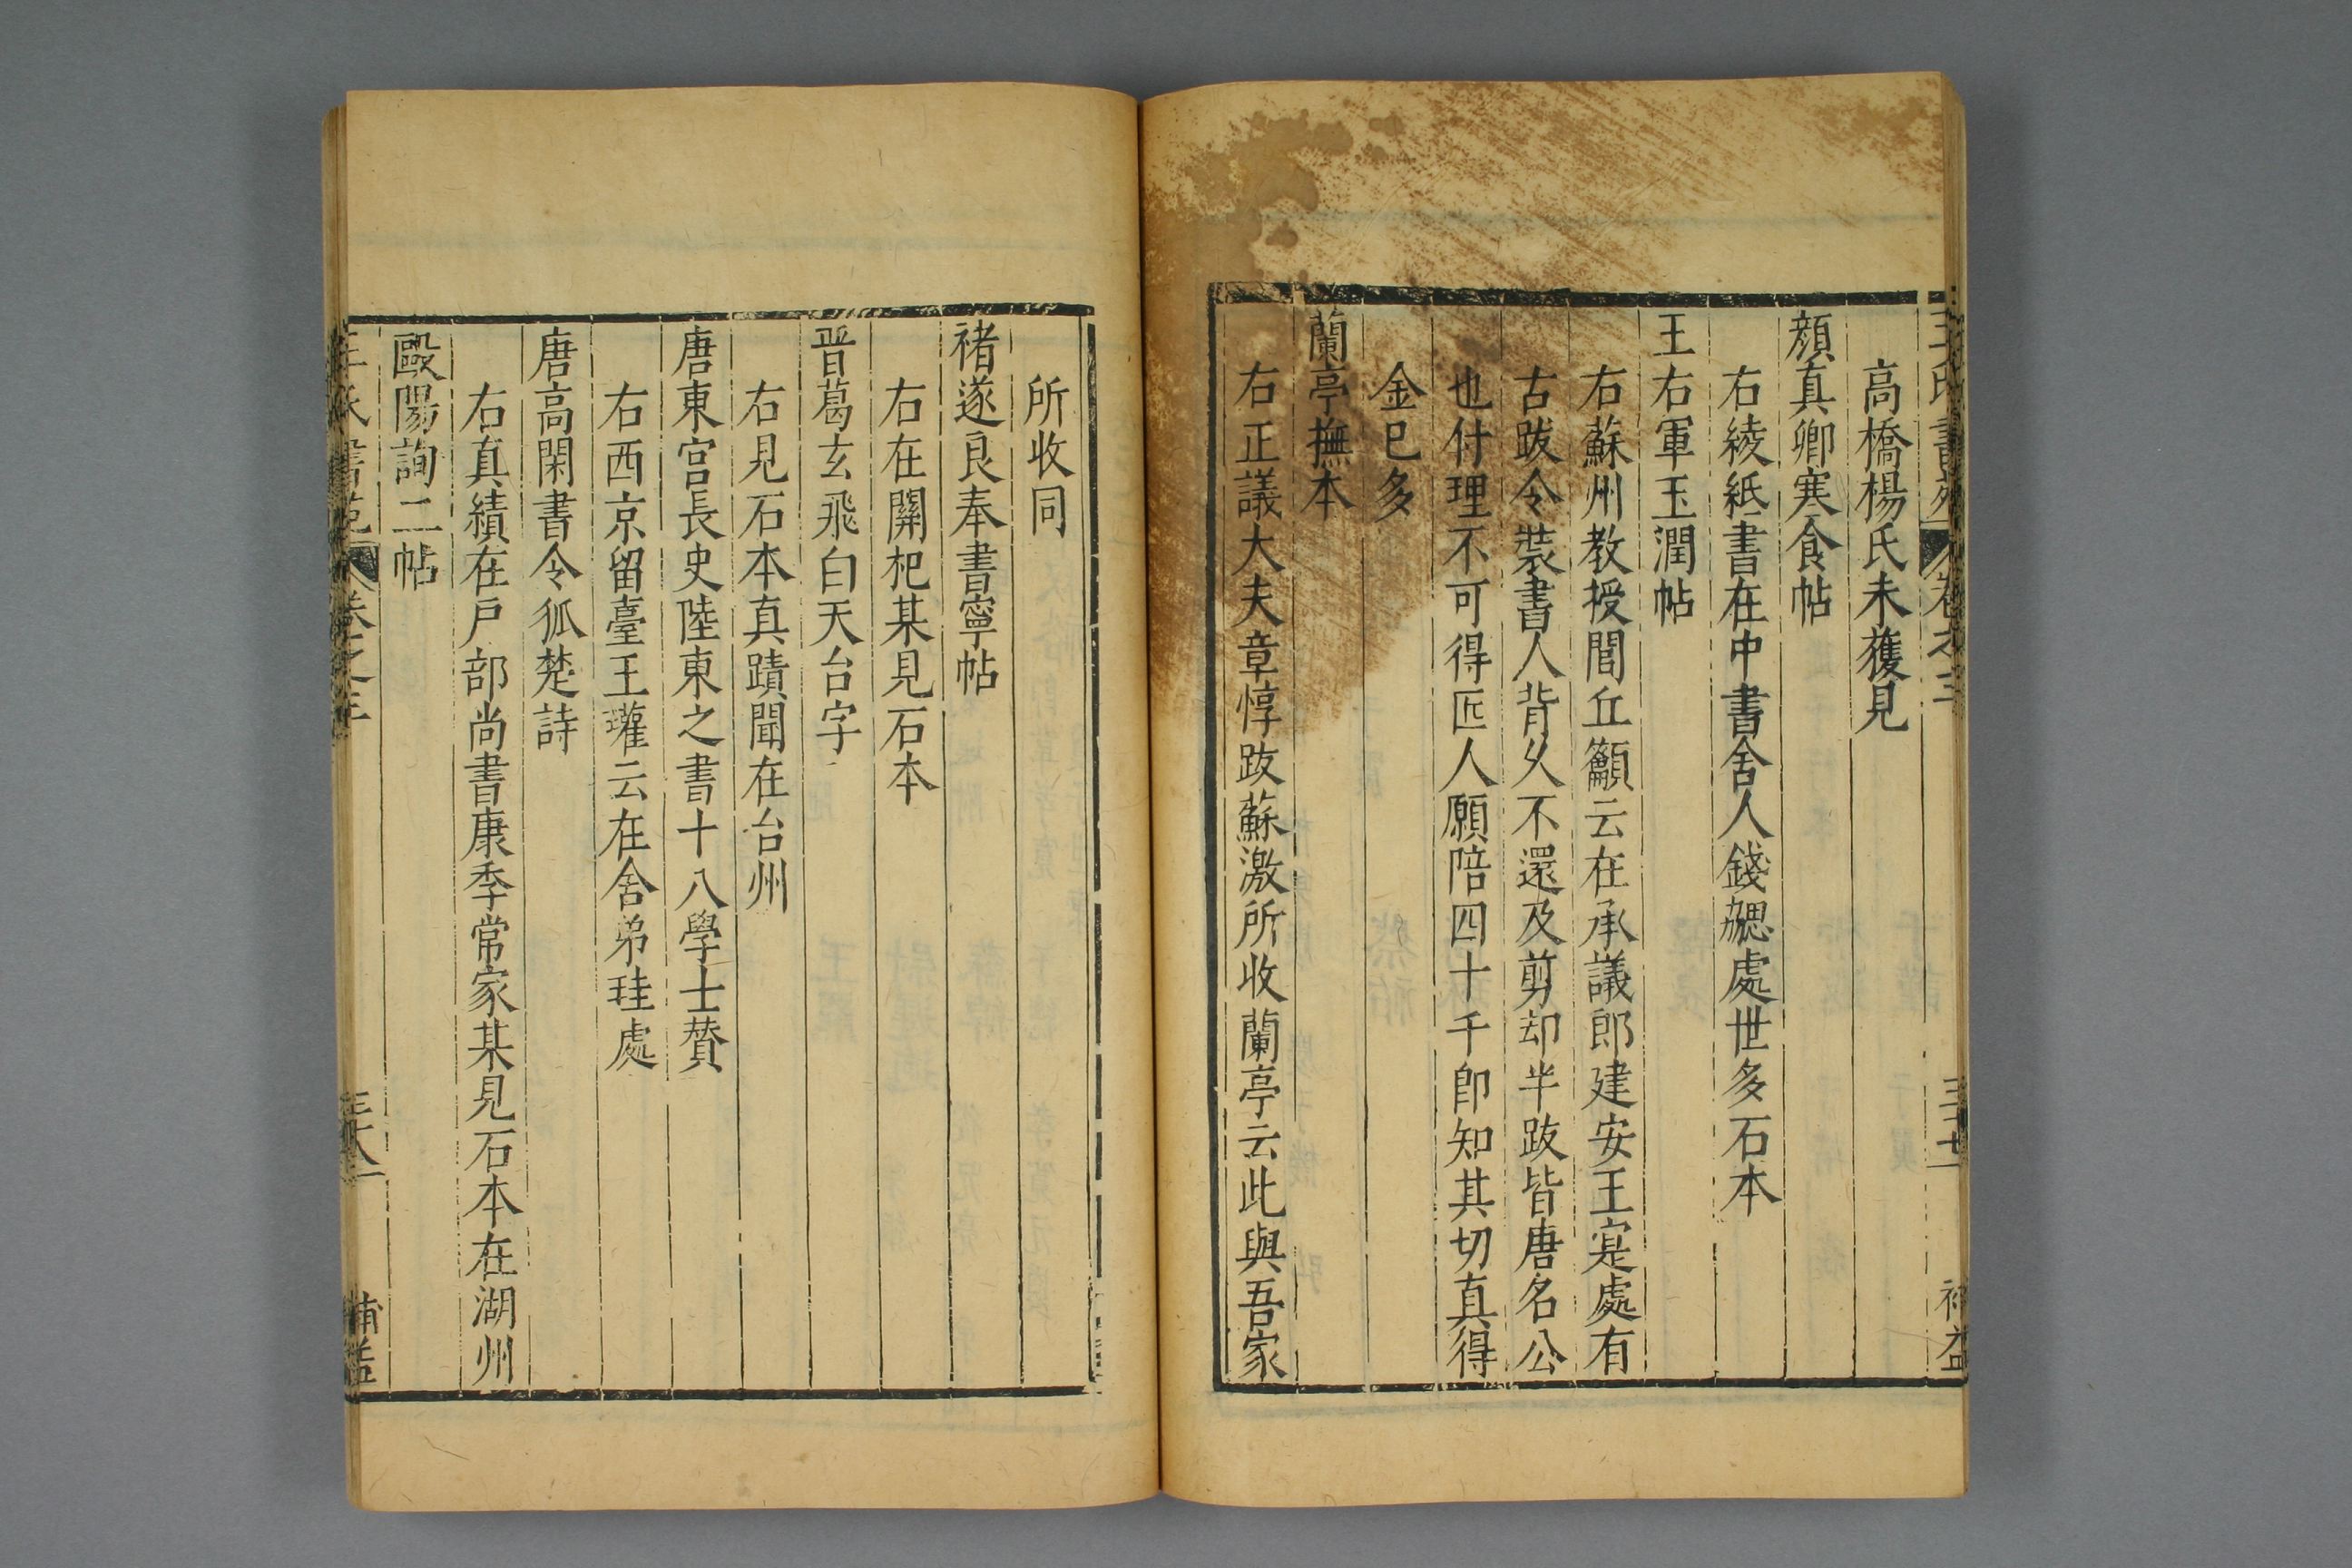 王氏書苑 卷之三 三十七 補益
高橋楊氏未獲見
顏真卿寒食帖
右綾紙書在中書舍人錢勰處世多石本
王右軍玉潤帖
右蘇州教授閭丘籲云在承議郎建安王寔處有
古跋令裝書人背久不還及剪却半跋皆唐名公
也付理不可得匠人願陪四十千即知其切真得
金已多
蘭亭撫本
右正議大夫章惇跋蘇激所收蘭亭云此與吾家
所收同
褚遂良奉書寧帖
右在關杞某見石本
晉葛玄飛白天台字
右見石本真蹟聞在台州
唐東宮長史陸東之書十八學士贊
右西京留臺王瓘云在舍弟珪處
唐高閑書令狐楚詩
右真績在戶部尚書康季常家某見石本在湖州
歐陽詢二帖
王氏書苑 卷之三 三十八 補益